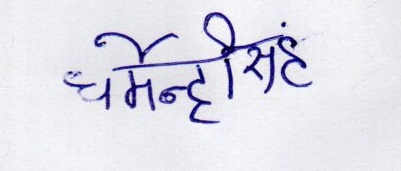 धर्मेन्द्रसिंह